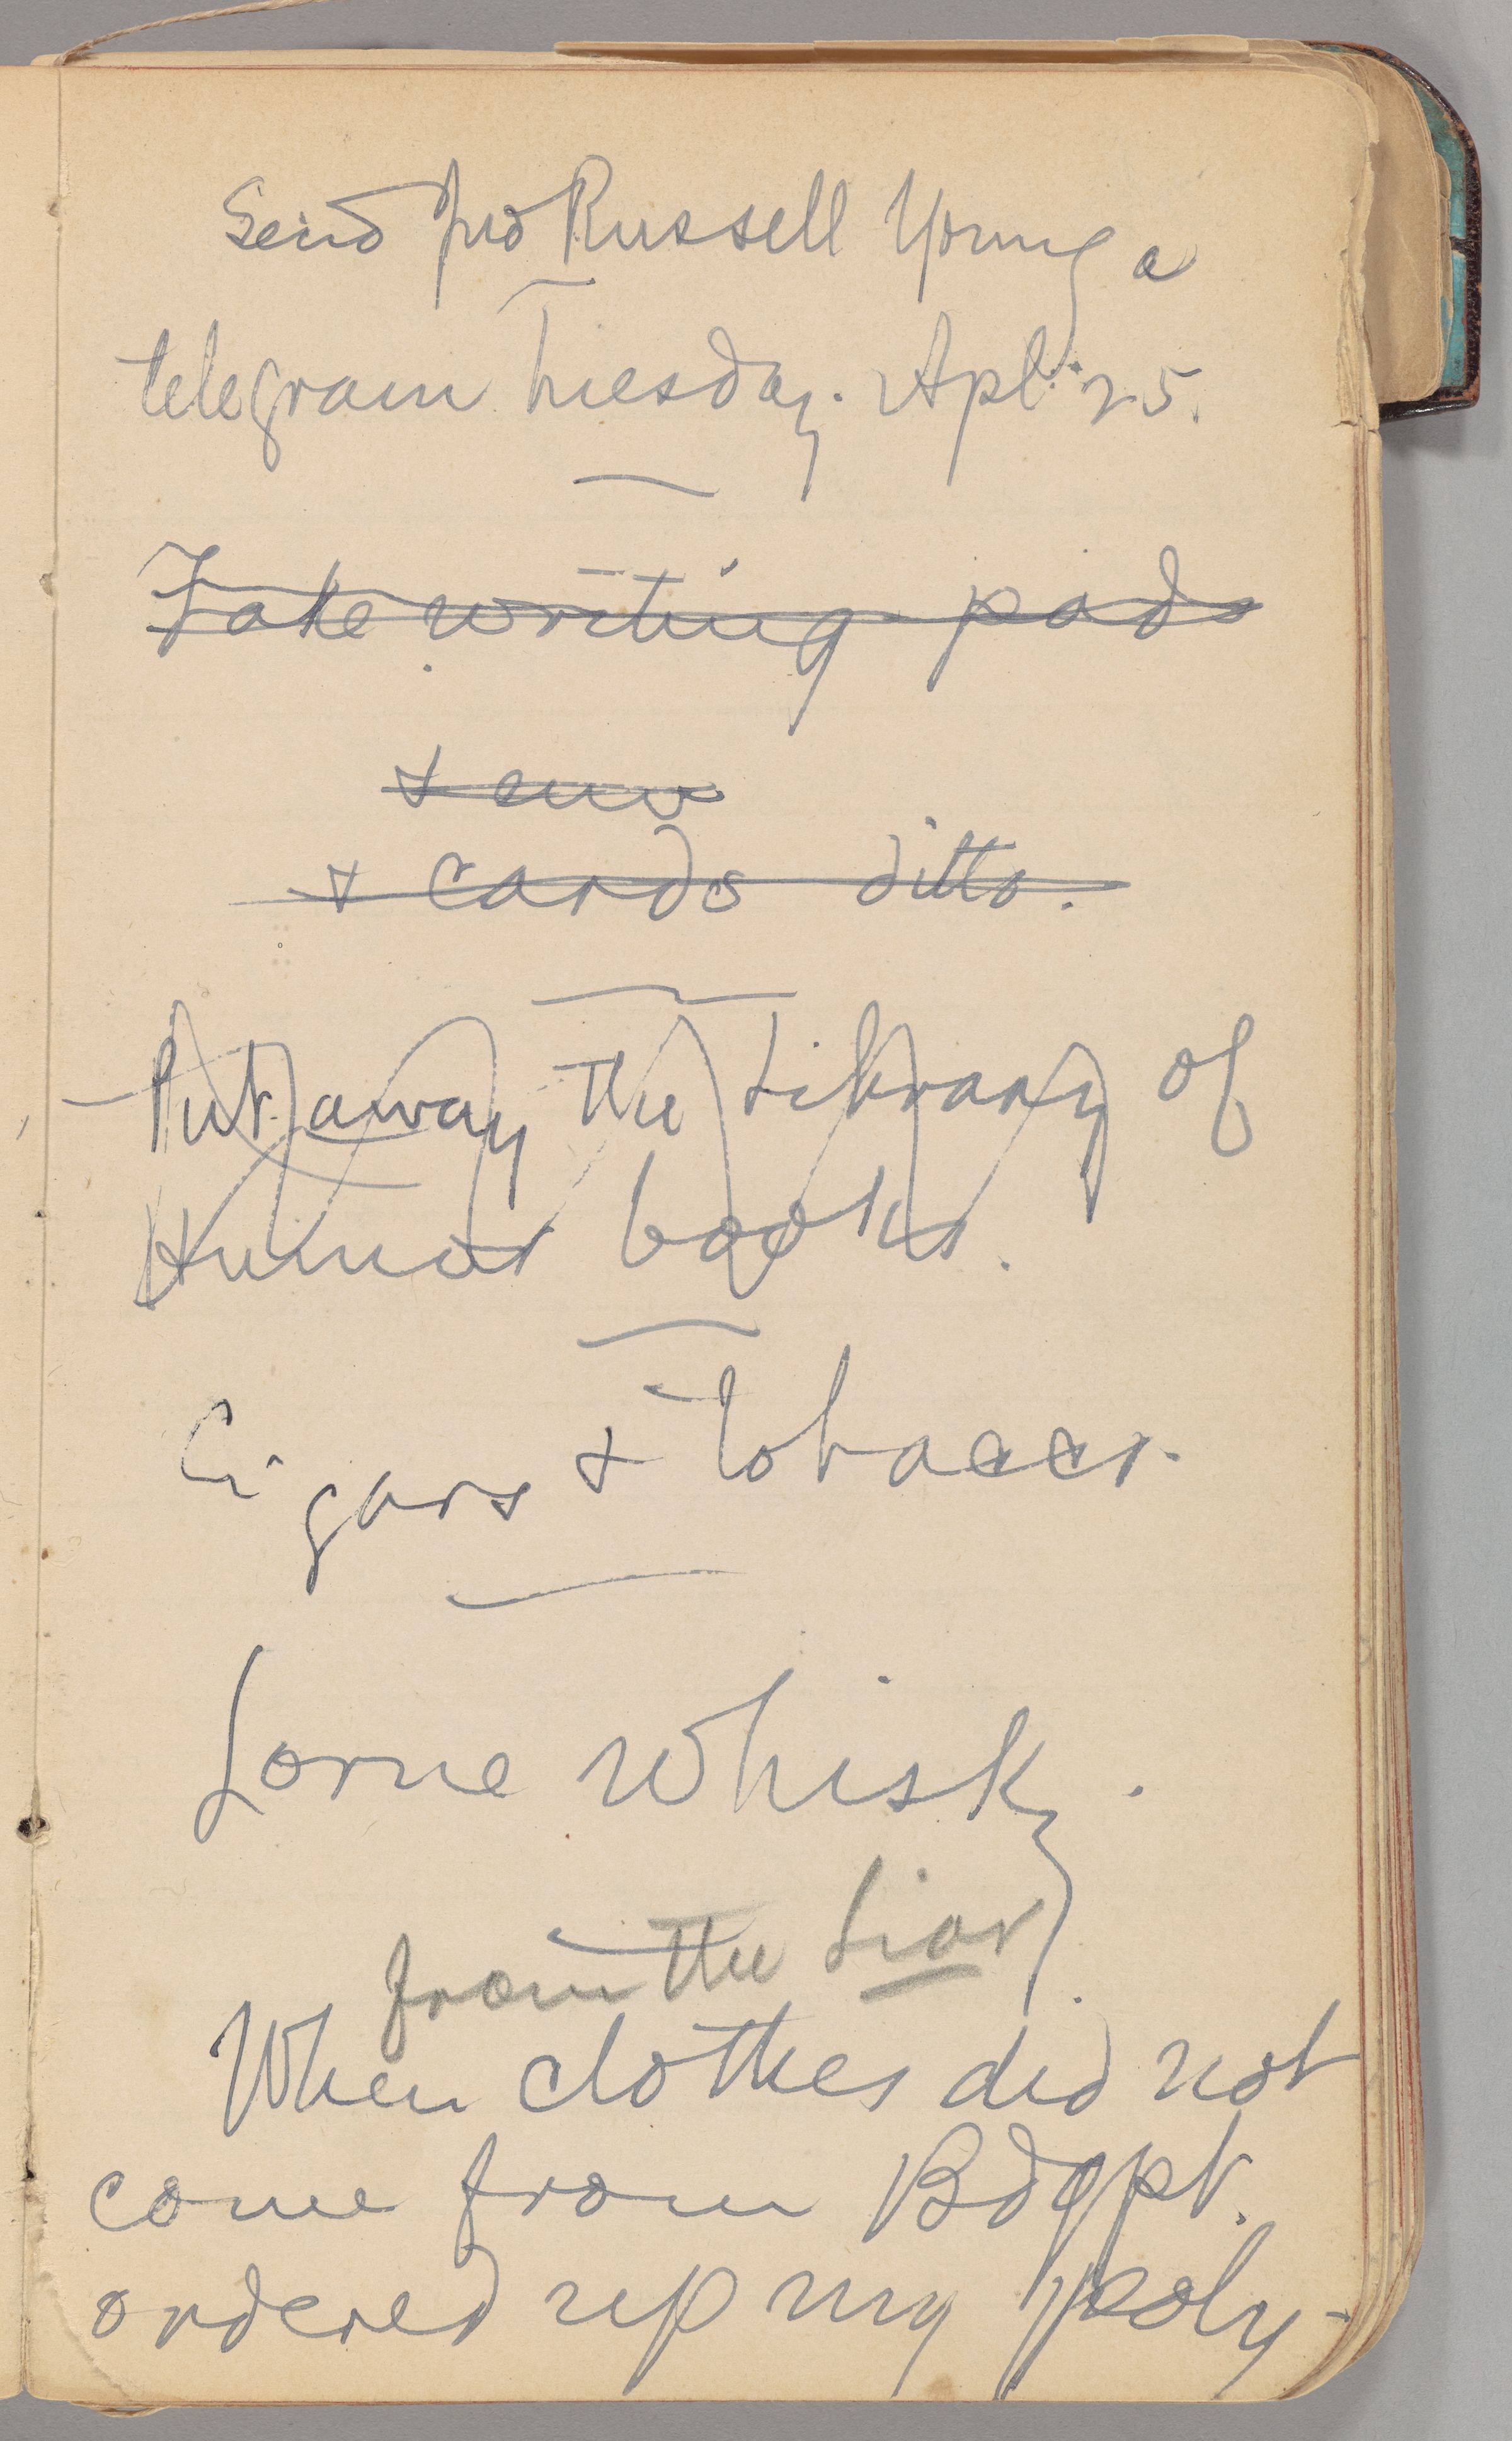 Send Jno Russell Young a
telegram Tuesday. Apl. 25.
Take writing pads
+ env
+ cards ditto.
Put away the Library of
Humor books.
Cigars + Tobacco.
Lorne Whisky.
from the Liar
When clothes did not
come from Bdgpt.
ordered up my poly-